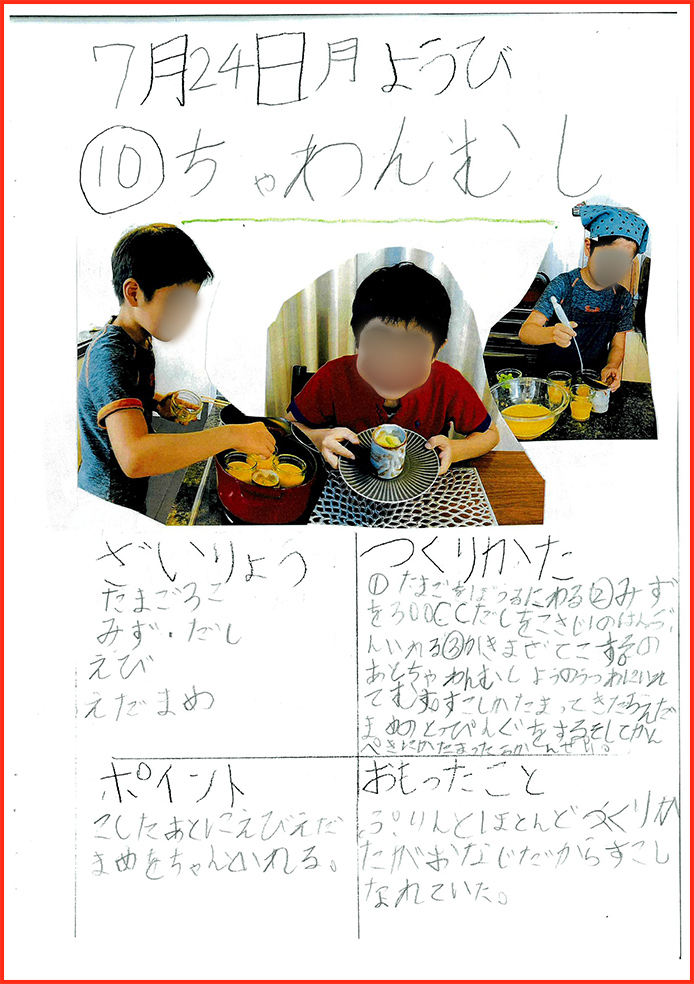 7月24日月ようび
⑩ちゃわんむし
ざいりょう
たまごろこ
みず・だし
えび
えだまめ
つくりかた
①たまごをぼうるにわる②みず
を300CCだしをこさじ1のはんぶ
んいれる③かきまぜてこすその
あとちゃわんむしようのうつわにいれ
てむす。すこしかたまってきたらえだ
まめのとっぴんぐをするそしてかん
ぺきにかたまったらかんせい。
ポイント
こしたあとにえびえだ
まめをちゃんといれる。
おもったこと
ぷりんとほとんどつくりか
たがおなじだからすこし
なれていた。